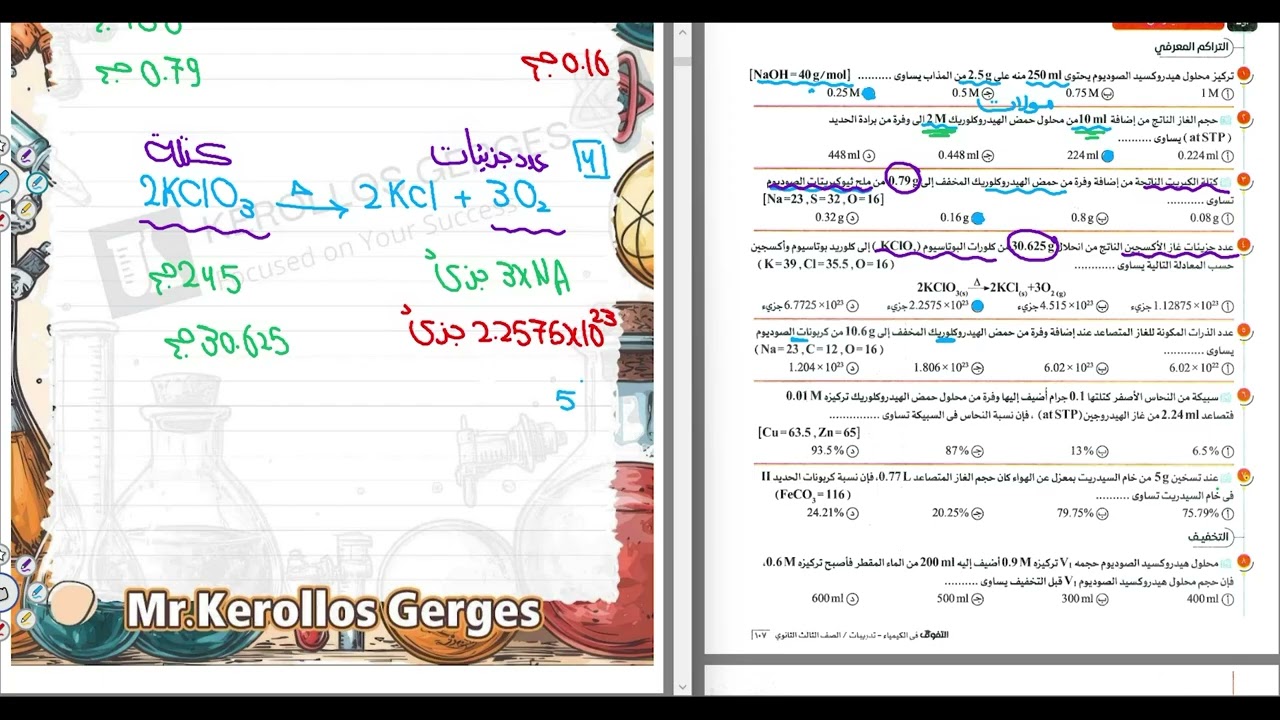 0.79 جم
0.16 جم
كتلة
عدد جزيئات
4
2KClO3 Δ→ 2KCl + 3O2
245 جم
3xNA جزئ
30.625 جم
2.2576x10^23 جزئ
5
KEROLLOS GERGES
Focused on Your Success
Mr.Kerollos Gerges
التراكم المعرفي
١ تركيز محلول هيدروكسيد الصوديوم يحتوى 250 ml منه على 2.5 g من المذاب يساوى .......... [NaOH = 40 g/mol]
أ 1 M ب 0.75 M ج 0.5 M 0.25 M
مولات
٢ حجم الغاز الناتج من إضافة 10 ml من محلول حمض الهيدروكلوريك 2 M إلى وفرة من برادة الحديد
(at STP) يساوى ..........
أ 0.224 ml 224 ml ج 0.448 ml د 448 ml
٣ كتلة الكبريت الناتجة من إضافة وفرة من حمض الهيدروكلوريك المخفف إلى 0.79 g من ملح ثيوكبريتات الصوديوم
تساوى .......... [Na = 23 , S = 32 , O = 16]
أ 0.08 g ب 0.8 g 0.16 g د 0.32 g
٤ عدد جزيئات غاز الأكسجين الناتج من انحلال 30.625 g من كلورات البوتاسيوم (KClO3) إلى كلوريد بوتاسيوم وأكسجين
حسب المعادلة التالية يساوى ............ (K = 39 , Cl = 35.5 , O = 16)
2KClO3(s) Δ→ 2KCl(s) + 3O2(g)
أ 1.12875 ×10^23 جزيء ب 4.515 ×10^23 جزيء 2.2575 ×10^23 جزيء د 6.7725 ×10^23 جزيء
٥ عدد الذرات المكونة للغاز المتصاعد عند إضافة وفرة من حمض الهيدروكلوريك المخفف إلى 10.6 g من كربونات الصوديوم
يساوى ............ (Na = 23 , C = 12 , O = 16)
أ 6.02 ×10^22 ب 6.02 ×10^23 ج 1.806 ×10^23 د 1.204 ×10^23
٦ سبيكة من النحاس الأصفر كتلتها 0.1 جرام أُضيف إليها وفرة من محلول حمض الهيدروكلوريك تركيزه 0.01 M
فتصاعد 2.24 ml من غاز الهيدروجين (at STP) ، فإن نسبة النحاس فى السبيكة تساوى ..............
[Cu = 63.5 , Zn = 65]
أ 6.5% ب 13% ج 87% د 93.5%
٧ عند تسخين 5 g من خام السيدريت بمعزل عن الهواء كان حجم الغاز المتصاعد 0.77 L، فإن نسبة كربونات الحديد II
فى خام السيدريت تساوى .......... (FeCO3 = 116)
أ 75.79% ب 79.75% ج 20.25% د 24.21%
التخفيف
٨ محلول هيدروكسيد الصوديوم حجمه V1 تركيزه 0.9 M أضيف إليه 200 ml من الماء المقطر فأصبح تركيزه 0.6 M،
فإن حجم محلول هيدروكسيد الصوديوم V1 قبل التخفيف يساوى ..........
أ 400 ml ب 300 ml ج 500 ml د 600 ml
التفوق فى الكيمياء - تدريبات / الصف الثالث الثانوي ١٠٧